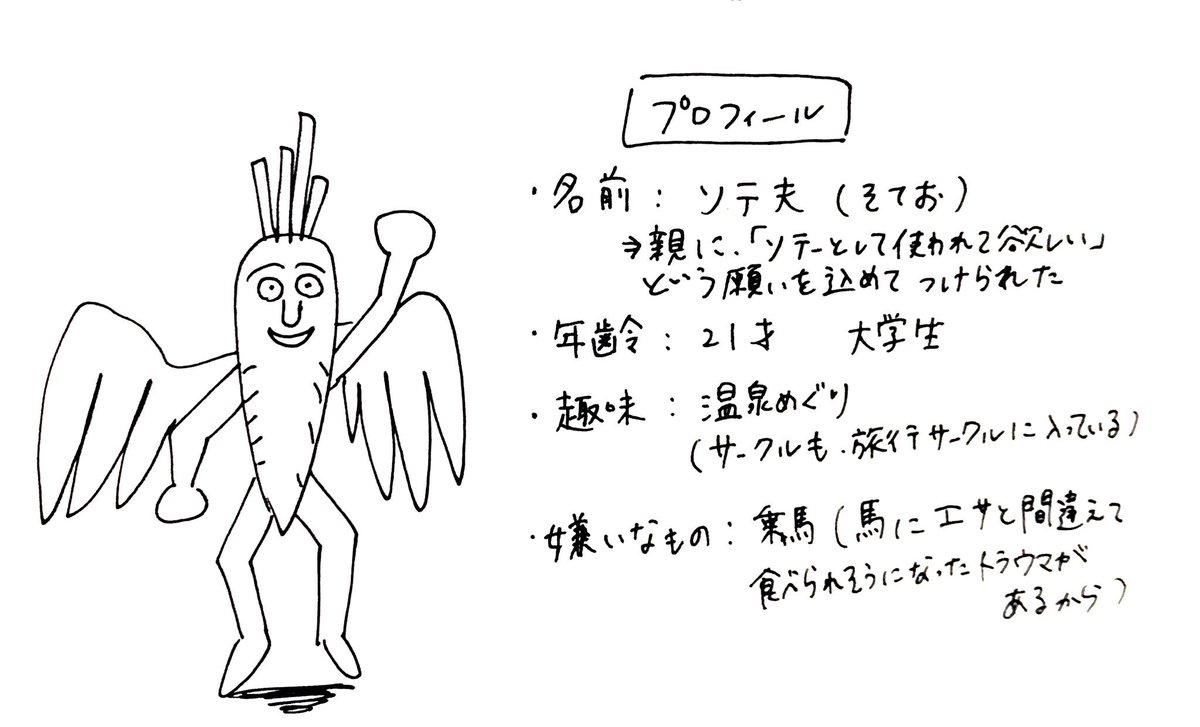 プロフィール
・名前：ソテ夫（そてお）
⇒親に、「ソテーとして使われて欲しい」
という願いを込めてつけられた
・年齢：21才　大学生
・趣味：温泉めぐり
（サークルも、旅行サークルに入っている）
・嫌いなもの：乗馬（馬にエサと間違えて
食べられそうになったトラウマが
あるから）